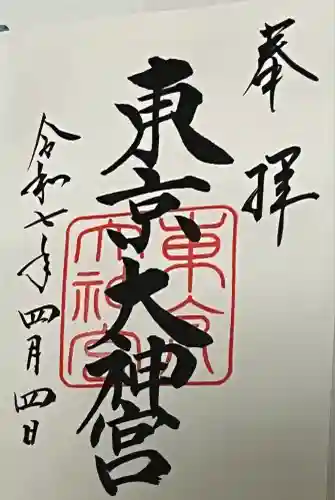 奉拝
東京大神宮
東京大神宮
令和七年四月四日